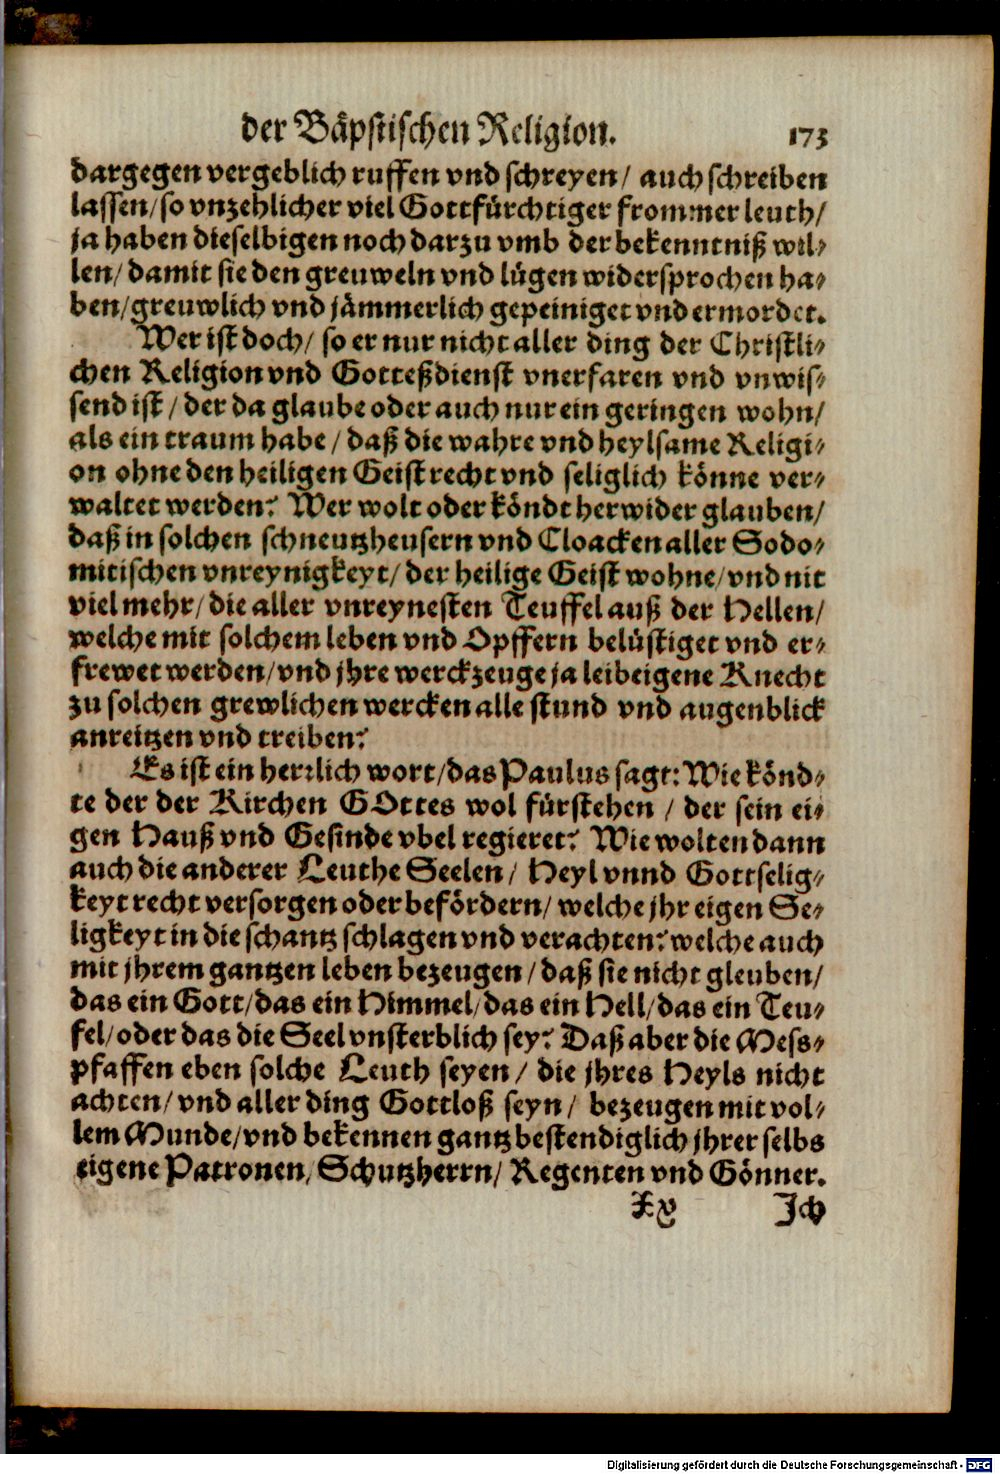 der Bäpstischen Religion. 173
dargegen vergeblich ruffen vnd schreyen/ auch schreiben
lassen/ so vnzehlicher viel Gottfürchtiger frommer leuth/
ja haben dieselbigen noch darzu vmb der bekenntniß wil-
len/ damit sie den greuweln vnd lügen widersprochen ha-
ben/ greuwlich vnd jämmerlich gepeiniget vnd ermordet.
Wer ist doch/ so er nur nicht aller ding der Christli-
chen Religion vnd Gotteßdienst vnerfaren vnd vnwis-
send ist/ der da glaube oder auch nur ein geringen wohn/
als ein traum habe/ daß die wahre vnd heylsame Religi-
on ohne den heiligen Geist recht vnd seliglich könne ver-
waltet werden? Wer wolt oder köndt herwider glauben/
daß in solchen schneutzheusern vnd Cloacken aller Sodo-
mitischen vnreynigkeyt/ der heilige Geist wohne/ vnd nit
viel mehr/ die aller vnreynesten Teuffel auß der Hellen/
welche mit solchem leben vnd Opffern belüstiget vnd er-
frewet werden/ vnd jhre werckzeuge ja leibeigene Knecht
zu solchen grewlichen wercken alle stund vnd augenblick
anreitzen vnd treiben?
Es ist ein herrlich wort/ das Paulus sagt: Wie könd-
te der der Kirchen GOttes wol fürstehen / der sein ei-
gen Hauß vnd Gesinde vbel regieret? Wie wolten dann
auch die anderer Leuthe Seelen/ Heyl vnnd Gottselig-
keyt recht versorgen oder befördern/ welche jhr eigen Se-
ligkeyt in die schantz schlagen vnd verachten? welche auch
mit jhrem gantzen leben bezeugen/ daß sie nicht gleuben/
das ein Gott/ das ein Himmel/ das ein Hell/ das ein Teu-
fel/ oder das die Seel vnsterblich sey? Daß aber die Mess-
pfaffen eben solche Leuth seyen/ die jhres Heyls nicht
achten/ vnd aller ding Gottloß seyn/ bezeugen mit vol-
lem Munde/ vnd bekennen gantz bestendiglich jhrer selbs
eigene Patronen/ Schutzherrn/ Regenten vnd Gönner.
Xx Ich
Digitalisierung gefördert durch die Deutsche Forschungsgemeinschaft - DFG